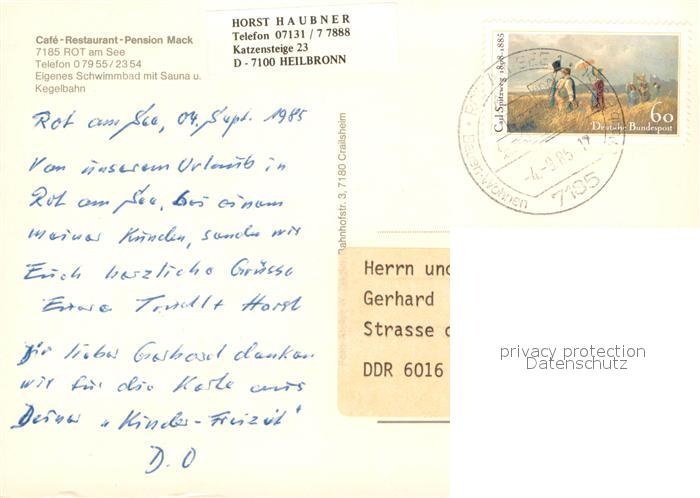 Café - Restaurant - Pension Mack
7185 ROT am See
Telefon 0 79 55 / 23 54
Eigenes Schwimmbad mit Sauna u.
Kegelbahn
HORST HAUBNER
Telefon 07131 / 7 7888
Katzensteige 23
D - 7100 HEILBRONN
Carl Spitzweg 1808-1885
60
Deutsche Bundespost
-4.-9.85
7185
Rot am See, 04. Sept. 1985
Von unserem Urlaub in
Rot am See, bei einem
meiner Kunden, senden wir
Euch herzliche Grüsse
Eure Trudl + Horst
Dir lieber Gerhard danken
wir für die Karte aus
Deiner "Kinder-Freizeit"
D. O
Bahnhofstr. 3, 7180 Crailsheim
Herrn und
Gerhard
Strasse d
DDR 6016
privacy protection
Datenschutz